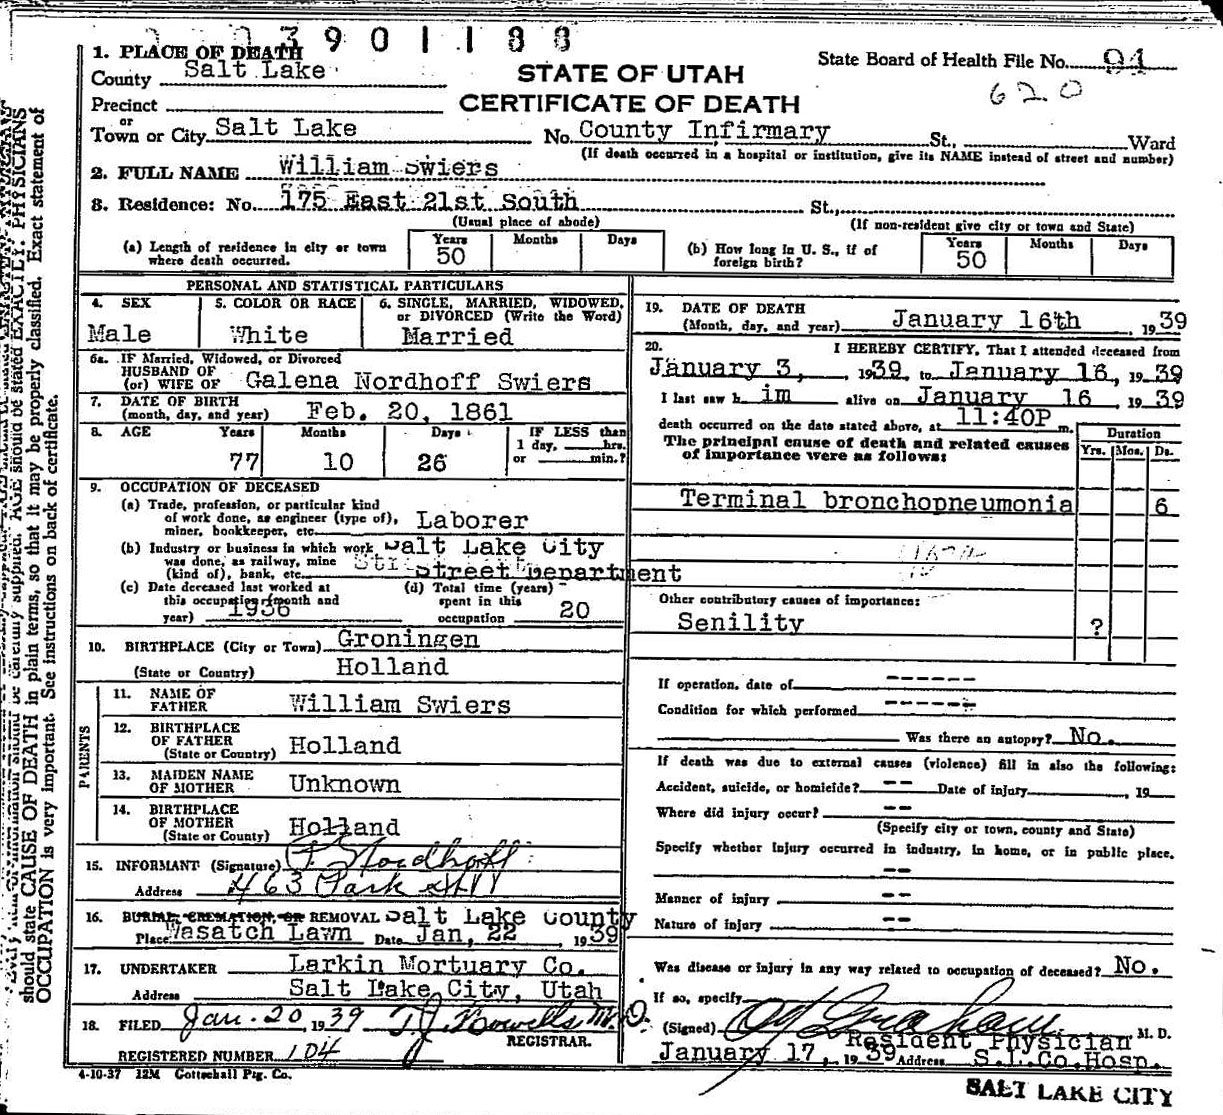 3901188
1. PLACE OF DEATH
County Salt Lake
STATE OF UTAH
CERTIFICATE OF DEATH
State Board of Health File No. 94
620
Precinct
or
Town or City Salt Lake No. County Infirmary St., Ward
(If death occurred in a hospital or institution, give its NAME instead of street and number)
2. FULL NAME William Swiers
3. Residence: No. 175 East 21st South St.,
(Usual place of abode) (If non-resident give city or town and State)
(a) Length of residence in city or town where death occurred. Years 50 Months Days
(b) How long in U. S., if of foreign birth? Years 50 Months Days
PERSONAL AND STATISTICAL PARTICULARS
4. SEX Male
5. COLOR OR RACE White
6. SINGLE, MARRIED, WIDOWED, or DIVORCED (Write the Word) Married
6a. IF Married, Widowed, or Divorced
HUSBAND OF
(or) WIFE OF Galena Nordhoff Swiers
7. DATE OF BIRTH
(month, day, and year) Feb. 20, 1861
8. AGE Years 77 Months 10 Days 26
IF LESS than 1 day, hrs. or min.?
9. OCCUPATION OF DECEASED
(a) Trade, profession, or particular kind
of work done, as engineer (type of),
miner, bookkeeper, etc. Laborer
(b) Industry or business in which work
was done, as railway, mine
(kind of), bank, etc. Salt Lake City
Street Department
(c) Date deceased last worked at
this occupation (month and
year) 1936
(d) Total time (years)
spent in this
occupation 20
10. BIRTHPLACE (City or Town) Groningen
(State or Country) Holland
PARENTS
11. NAME OF
FATHER William Swiers
12. BIRTHPLACE
OF FATHER
(State or Country) Holland
13. MAIDEN NAME
OF MOTHER Unknown
14. BIRTHPLACE
OF MOTHER
(State or County) Holland
15. INFORMANT (Signature) Nordhoff
Address 463 Park
16. BURIAL, CREMATION, OR REMOVAL Salt Lake County
Place Wasatch Lawn Date Jan, 22 1939
17. UNDERTAKER Larkin Mortuary Co.
Address Salt Lake City, Utah
18. FILED Jan. 20, 1939 T.J. Howells M.D.
REGISTRAR.
REGISTERED NUMBER 104
4-10-37 12M Gottschall Ptg. Co.
19. DATE OF DEATH
(Month, day, and year) January 16th, 1939
20. I HEREBY CERTIFY, That I attended deceased from
January 3, 1939, to January 16, 1939
I last saw h im alive on January 16 1939
death occurred on the date stated above, at 11:40P m.
The principal cause of death and related causes
of importance were as follows:
Duration
Yrs. Mos. Ds.
Terminal bronchopneumonia 6
Other contributory causes of importance:
Senility ?
If operation, date of ------
Condition for which performed ------
Was there an autopsy? No.
If death was due to external causes (violence) fill in also the following:
Accident, suicide, or homicide? -- Date of injury , 19
Where did injury occur? --
(Specify city or town, county and State)
Specify whether injury occurred in industry, in home, or in public place.
--
Manner of injury --
Nature of injury --
Was disease or injury in any way related to occupation of deceased? No.
If so, specify
(Signed) Graham M. D.
Resident Physician
January 17, 1939 Address S.L.Co.Hosp.
SALT LAKE CITY
should state CAUSE OF DEATH in plain terms, so that it may be properly classified. Exact statement of
OCCUPATION is very important. See instructions on back of certificate.